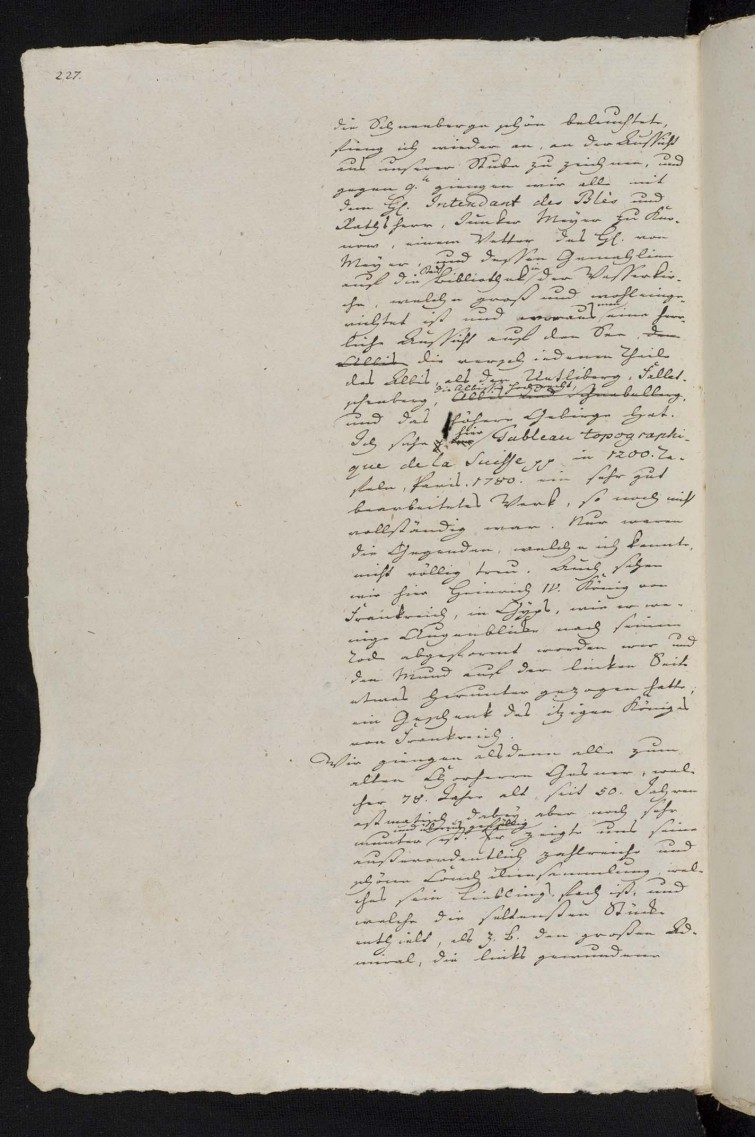 227.
die Schneeberge schön beleuchtete,
fieng ich wieder an, an der Aussicht
aus unserer Stube zu zeichnen, und
gegen 9. giengen wir alle mit
dem H. Intendant des Blés und
Rathsherr, Junker Meyer zu
einem Vetter des H. von
Meyer, und dessen Gemahlin
auf die Bibliothek in der Wasserkir-
che, welche groß und wohl einge-
richtet ist und woraus man eine herr-
liche Aussicht auf den See, den
Albis die verschiedenen Theile
des Albis, als den Uetliberg,
schenberg, die Albis Hochwacht, Albis und
und das höhere Gebirge hat.
Ich sahe hier Tableau topographi-
que de la Suisse pp in 1200. Ta-
feln, Paris. 1780. ein sehr gut
bearbeitetes Werk, so noch nicht
vollständig war. Nur waren
die Gegenden, welche ich kannte,
nicht völlig treu. Auch sahen
wir hier Heinrich IV. König von
Frankreich, in Gyps, wie er we-
nige Augenblicke nach seinem
Tode abgeformt worden war und
den Mund auf der linken Seite
etwas herunter gezogen hatte,
ein Geschenk des itzigen Königes
von Frankreich.
Wir giengen alsdenn alle zum
alten Chorherrn Gesner, wel-
cher 78. Jahre alt, seit 50. Jahren
astmatisch, dabey aber noch sehr
munter und gefällig ist. Er zeigte uns seine
außerordentlich zahlreiche und
schöne Conchiliensammlung, wel-
ches sein Lieblings fach ist, und
welche die seltensten Stücke
enthielt, als z. B. den großen Ad-
miral, die links gewundene